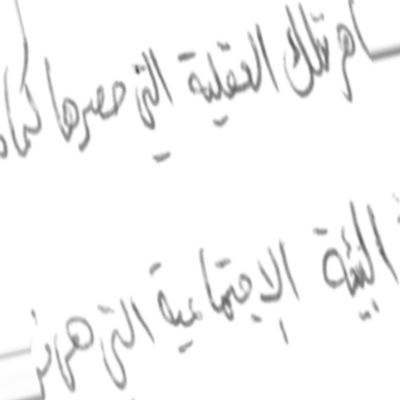 هر تلك العقلية التي حصرها كتا
البيئة الإجتماعية التي هي من